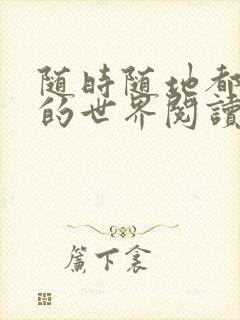 随時随地都
的世界閱讀
簾下衾